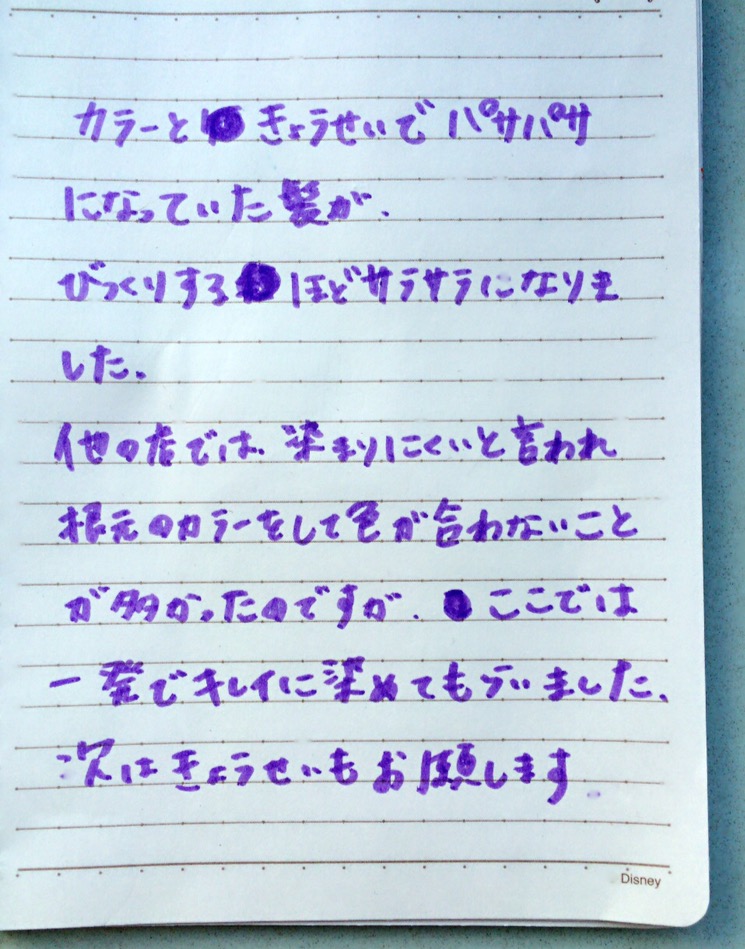 カラーときょうせいでパサパサ
になっていた髪が、
びっくりするほどサラサラになりま
した。
他の店では、染まりにくいと言われ
根元のカラーをして色が合わないこと
が多かったのですが、ここでは
一発でキレイに染めてもらいました。
次はきょうせいもお願します。
Disney